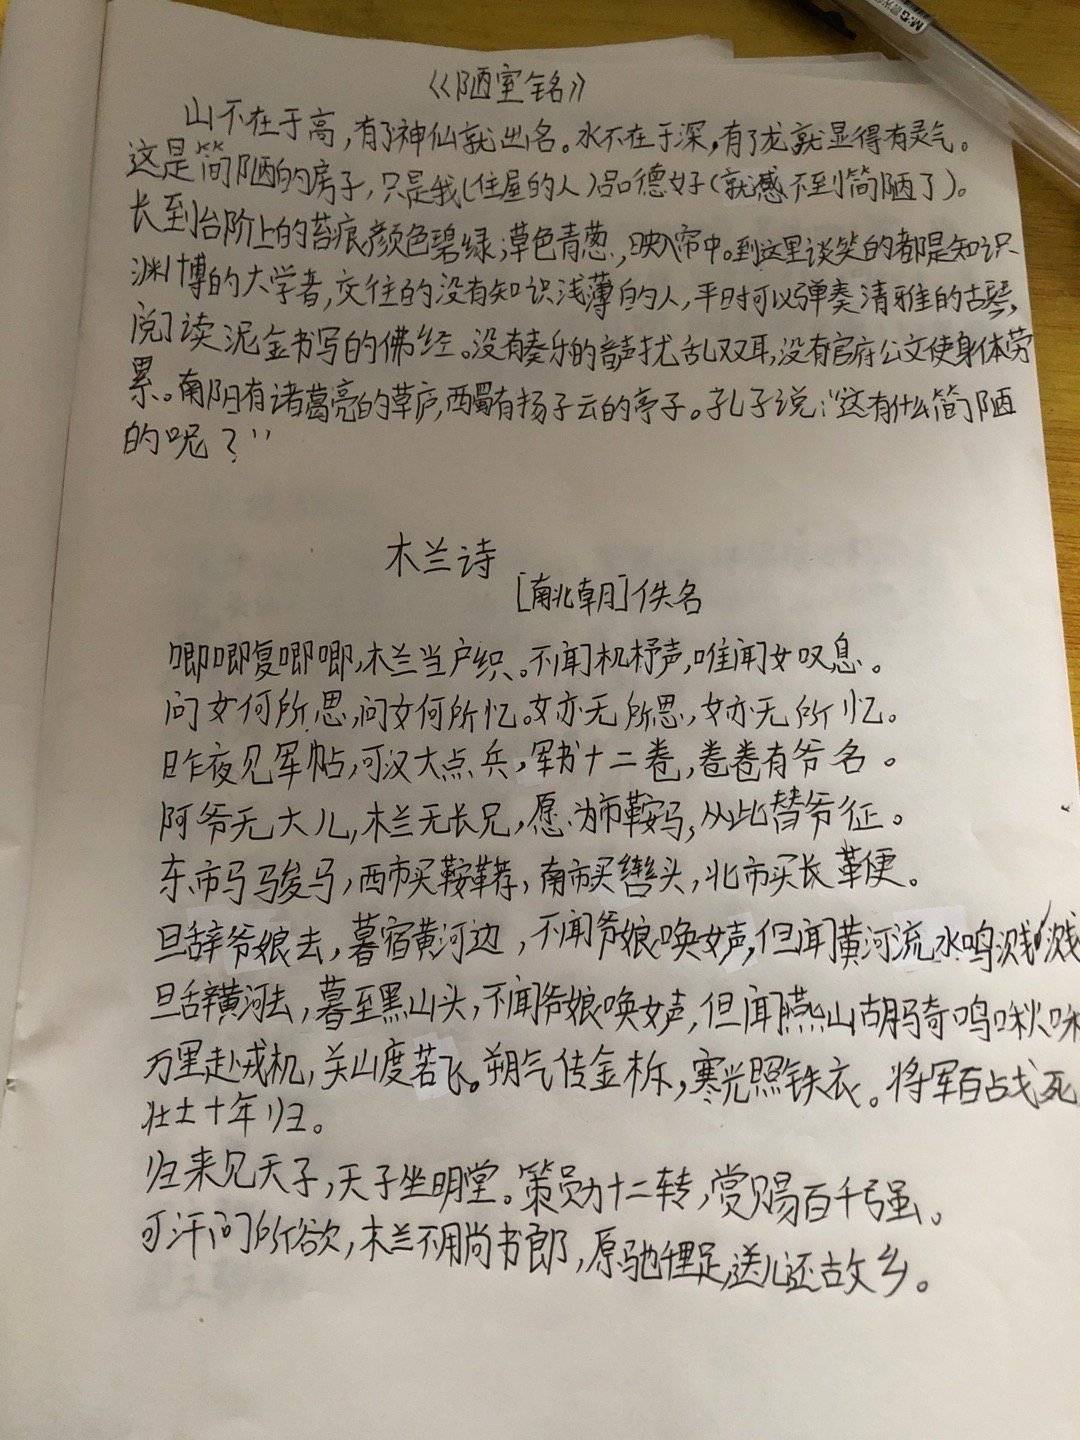 M&G
《陋室铭》
山不在于高，有了神仙就出名。水不在于深，有了龙就显得有灵气。
这是简陋的房子，只是我（住屋的人）品德好（就感不到简陋了）。
长到台阶上的苔痕颜色碧绿；草色青葱，映入帘中。到这里谈笑的都是知识
渊博的大学者，交往的没有知识浅薄的人，平时可以弹奏清雅的古琴，
阅读泥金书写的佛经。没有奏乐的声音扰乱双耳，没有官府公文使身体劳
累。南阳有诸葛亮的草庐，西蜀有扬子云的亭子。孔子说：“这有什么简陋
的呢？”
木兰诗
[南北朝]佚名
唧唧复唧唧，木兰当户织。不闻机杼声，唯闻女叹息。
问女何所思，问女何所忆。女亦无所思，女亦无所忆。
昨夜见军帖，可汉大点兵，军书十二卷，卷卷有爷名。
阿爷无大儿，木兰无长兄，愿为市鞍马，从此替爷征。
东市马骏马，西市买鞍鞯，南市买辔头，北市买长鞭。
旦辞爷娘去，暮宿黄河边，不闻爷娘唤女声，但闻黄河流水鸣溅溅
旦辞黄河去，暮至黑山头，不闻爷娘唤女声，但闻燕山胡骑鸣啾啾
万里赴戎机，关山度若飞。朔气传金柝，寒光照铁衣。将军百战死
壮士十年归。
归来见天子，天子坐明堂。策勋十二转，赏赐百千强。
可汗问所欲，木兰不用尚书郎，原驰千里足，送儿还故乡。